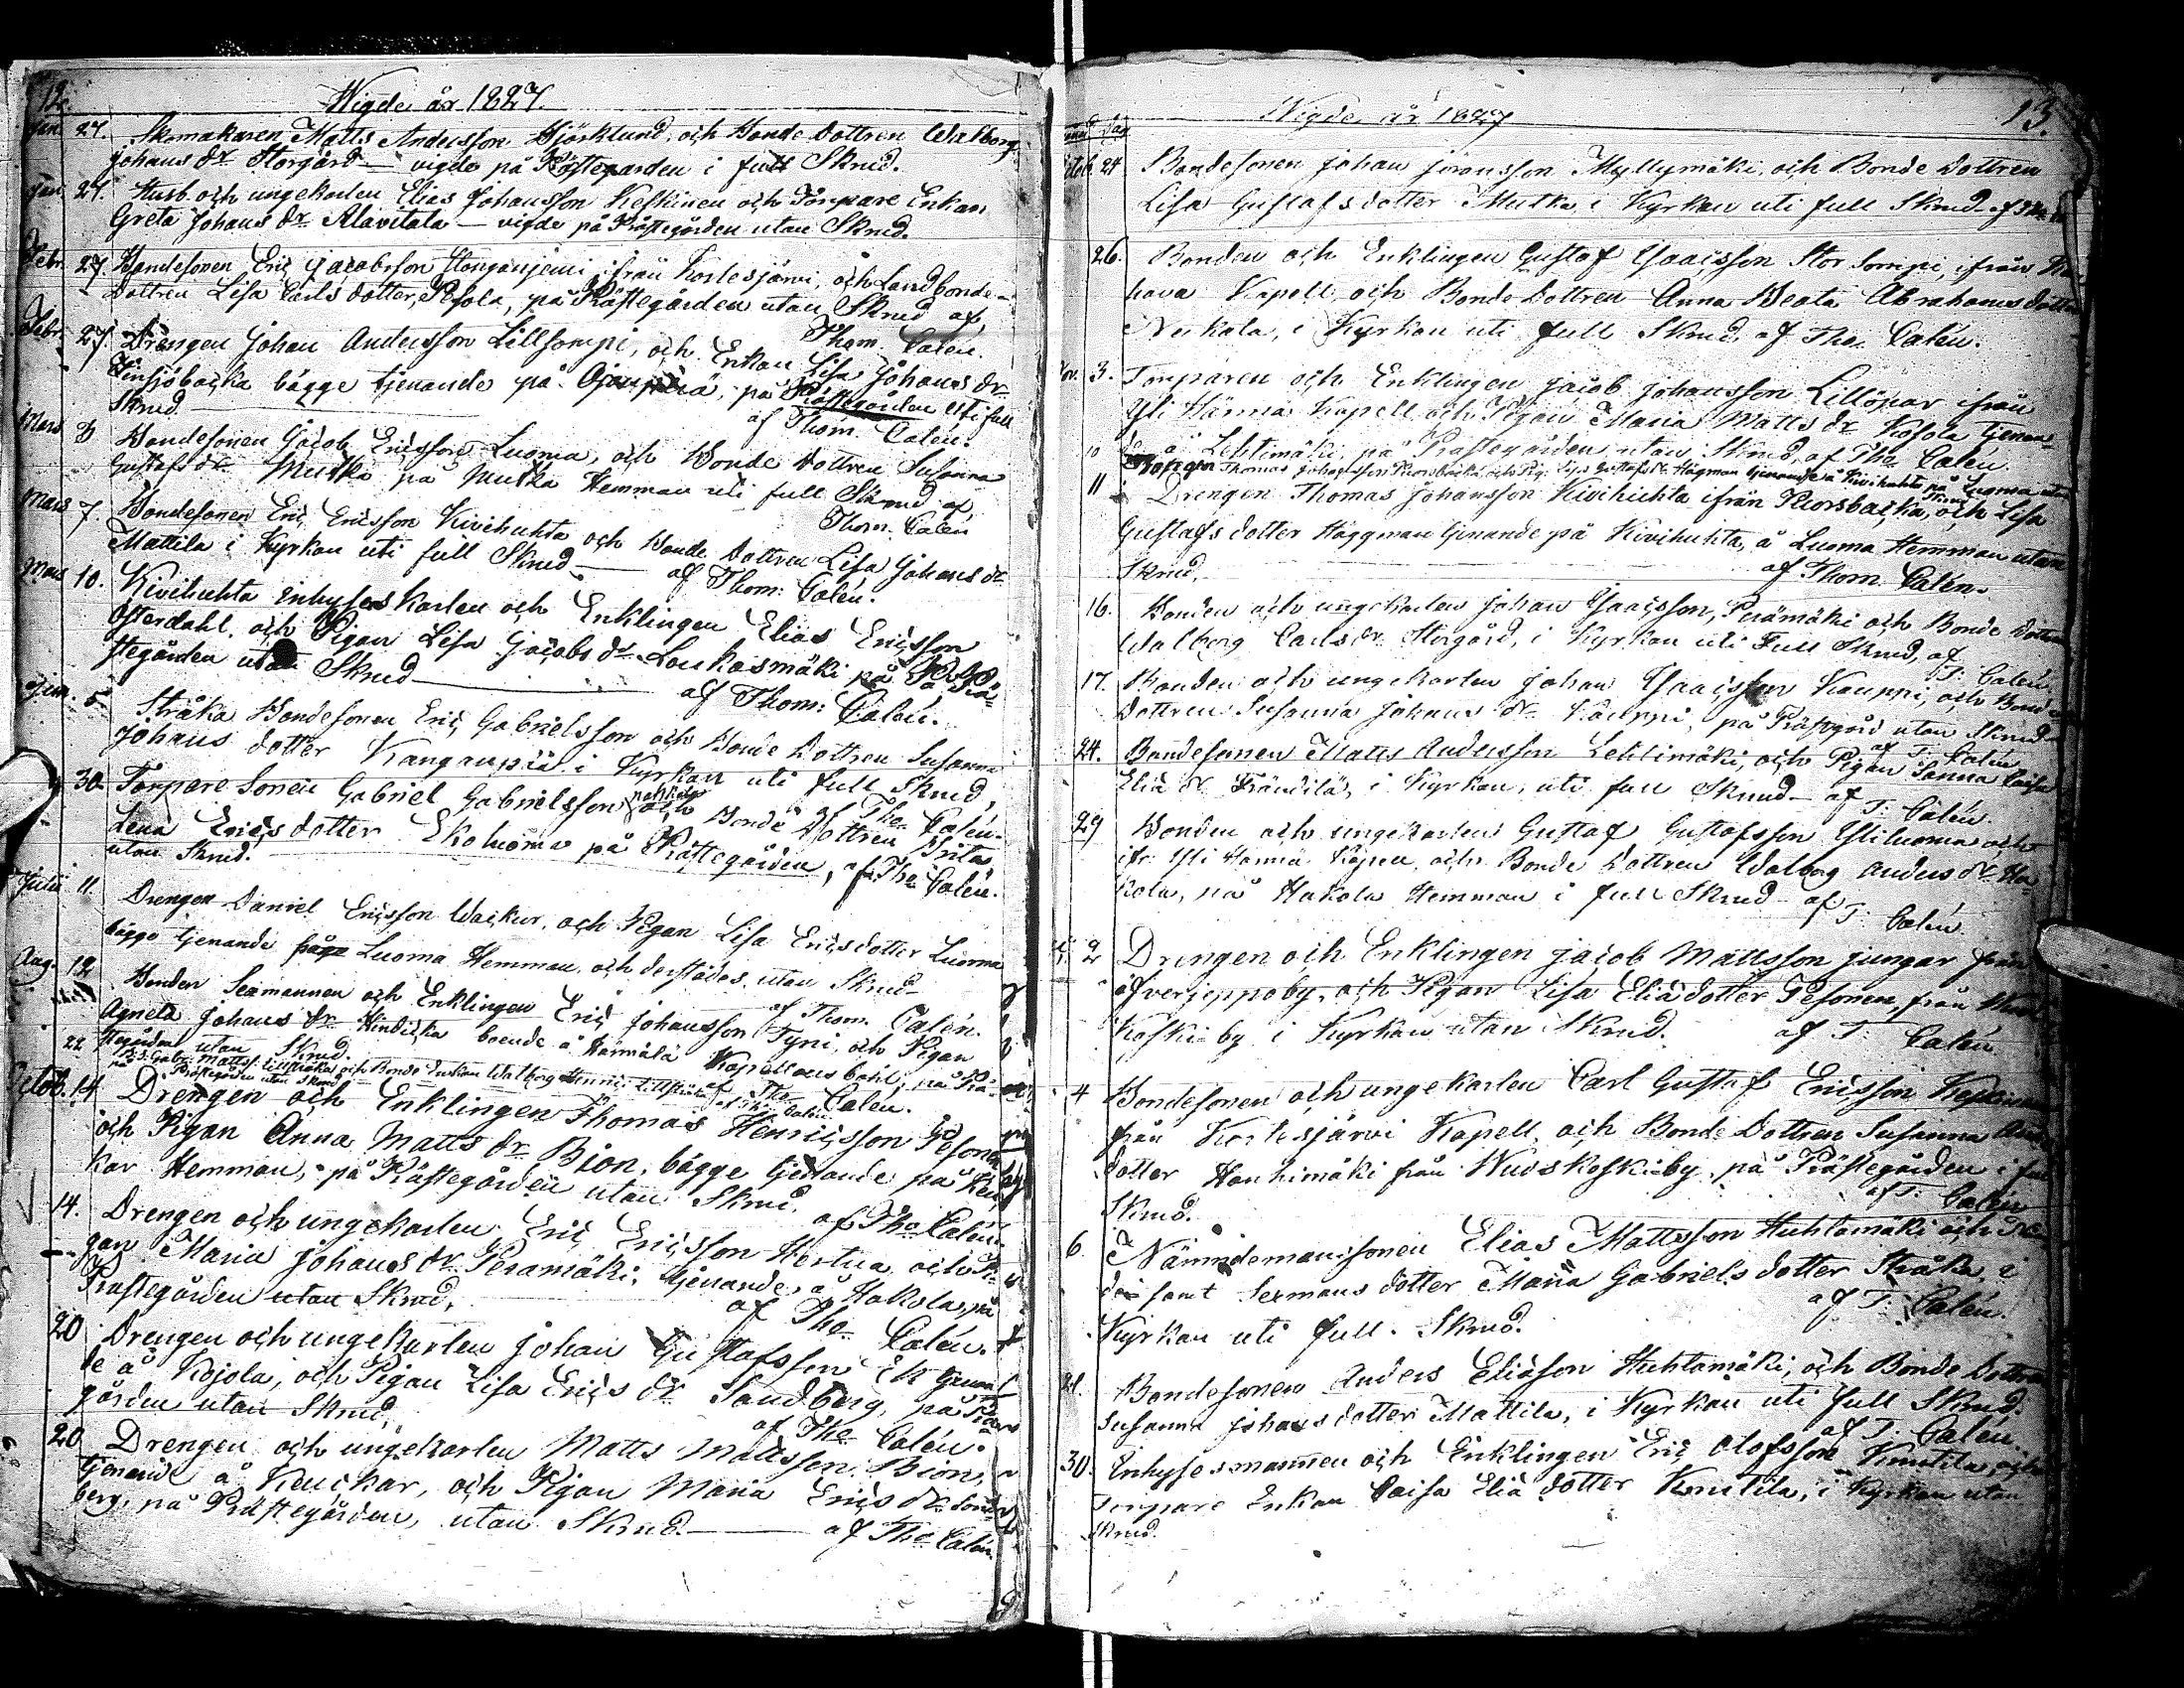 12.
Wigde år 1827.
Jan. 27. Skomakaren Matts Andersson Björklund, och Bonde Dottren Walborg
Johans dr Storgård — vigde på Prästegarden i full Skrud.
Jan. 27. Husb. och ungekarlen Elias Johansson Keskinen och Torpare Enkan
Greta Johans dr Alavitala — vigde på Prästegården utan Skrud.
Febr. 27. Bondesonen Eric Jacobsson ifrån Kortesjärvi, och Landbonde-
Dottren Lisa Carls dotter, Pesola, på Prästegården utan Skrud af
Thom. Calén.
Febr. 27. Drengen Johan Andersson Lillsompi, och Enkan Lisa Johans dr
bägge tjenande på på Prästegården uti full
Skrud. af Thom. Calén.
Mars 3 Bondesonen Jacob Ericsson Luoma, och Bonde Dottren Susanna
Gustafs dr Mutka på Mutka Hemman uti full Skrud af
Thom. Calén
Mars 7. Bondesonen Eric Ericsson Kivihuhta och Bonde Dottren Lisa Johans dr
Mattila i Kyrkan uti full Skrud — af Thom: Calén.
Mars 10. Kivihuhta inhyses karlen och Enklingen Elias Ericsson
Österdahl, och Pigan Lisa Jacobs dr Loukasmäki på Prä-
stegården utan Skrud — af Thom: Calén.
Jun. 5 Stråka Bondesonen Eric Gabrielsson och Bonde Dottren Susanna
Johans dotter Kangaspää i Kyrkan uti full Skrud,
af Tho. Calén.
30. Torpare Sonen Gabriel Gabrielsson och Bonde Dottren Brita
Lena Erics dotter Ekoluoma på Prästegården, af Tho Calén.
utan Skrud.
Julii 11. Drengen Daniel Ericsson Wackur, och Pigan Lisa Ericsdotter Luoma
bägge tjenande på Luoma Hemman, och derstädes, utan Skrud —
af Thom. Calén.
Aug. 12 Bonden Sexmannen och Enklingen Eric Johansson Tyni, och Pigan
Agneta Johans dr Hindicka boende å Hännälä Kapellans bohl, på Prä-
stegården utan Skrud. af Tho. Calén.
22 B.S. Gabr. Mattss. Lillstråka och Bonde Enkan Walborg Henrics Lillstråka
på Prästegården utan Skrud af Tho: Calén
Octob. 14 Drengen och Enklingen Thomas Henricsson Pesonen
och Pigan Anna Matts dr Bion, bägge tjenande på Keuc-
kar Hemman, på Prästegården utan Skrud. af Tho Calén.
14. Drengen och ungekarlen Eric Ericsson Hertua och Pi-
gan Maria Johans dr Peramäki, tjenande å Hakola, på
Prästegården utan Skrud, af Tho Calén.
20 Drengen och ungekarlen Johan Gustafsson Ek tjenan-
de å Kojola, och Pigan Lisa Erics dr Sandberg, på Präste
gården utan Skrud, af Tho Calén.
20 Drengen och ungekarlen Matts Mattsson Bion,
tjenande å Keuckar, och Pigan Maria Erics dr Sand-
berg, på Prästegården, utan Skrud — af Tho Calén.
13.
Wigde år 1827
Dag
Octob. 24 Bondesonen Johan Jöransson Myllymäki, och Bonde Dottren
Lisa Gustafsdotter Mutka, i Kyrkan uti full Skrud
26. Bonden och Enklingen Gustaf Isacsson Stor Sompi, ifrån
hava Kapell, och Bonde Dottren Anna Beata Abrahamsdotter
Niskala, i Kyrkan uti full Skrud, af Tho: Calén.
Nov. 3. Torparen och Enklingen Jacob Johansson Lillöpar ifrån
Yli Härmä Kapell och Pigan Maria Matts dr Kosola tjenan-
de å Lehtimäki, på Prästegården utan Skrud, af Tho Calén.
10 Drengen Thomas Johansson Porsbacka och Pig. Lisa Gustafs dr Hägman tjenande å Kivihuhta på Luoma utan
Skrud
11 Drengen Thomas Johansson Kivihuhta ifrån Porsbacka, och Lisa
Gustafs dotter Häggman tjenande på Kivihuhta, å Luoma Hemman utan
Skrud. af Thom. Calén.
16. Bonden och ungekarlen Johan Isacsson, Perämäki och Bonde Dottren
Walborg Carls dr Storgård, i Kyrkan uti Full Skrud, af
T: Calén
17. Bonden och ungekarlen Johan Isacsson Kauppi, och Bonde
Dottren Susanna Johans dr Kauppi, på Prästgård utan Skrud
af T: Calén
24. Bondesonen Matts Andersson Lehtimäki, och Pigan Sanna Caisa
Eliæ dr Frändilä, i Kyrkan, uti full Skrud — af T: Calén.
29 Bonden och ungekarlen Gustaf Gustafsson Yliluoma och
ifr. Yli Härmä Kapell och Bonde Dottren Walborg Anders dr Ha-
kola, på Hakola Hemman i full Skrud — af T: Calén.
2 Drengen och Enklingen Jacob Mattsson Jungar från
öfverjeppo by, och Pigan Lisa Eliæ dotter Pesonen, från
Koski by i Kyrkan utan Skrud. af T: Calén
4 Bondesonen och ungekarlen Carl Gustaf Ericsson
från Kortesjärvi Kapell, och Bonde Dottren Susanna
dotter Hanhimäki från Wuoskoski by, på Prästegården i full
Skrud. af T: Calén
6. Nämndemanssonen Elias Mattsson Huhtamäki och
samt Sexmans dotter Maria Gabriels dotter Stråka, i
Kyrkan uti full Skrud. af T: Calén.
21. Bondesonen Anders Eliasson Huhtamäki, och Bonde Dottren
Susanna Johans dotter Mattila, i Kyrkan uti full Skrud,
af T: Calén.
30. Inhysesmannen och Enklingen Eric Olofsson Knutila, och
Torpare Enkan Caisa Eliæ dotter Knutila, i Kyrkan utan
Skrud.